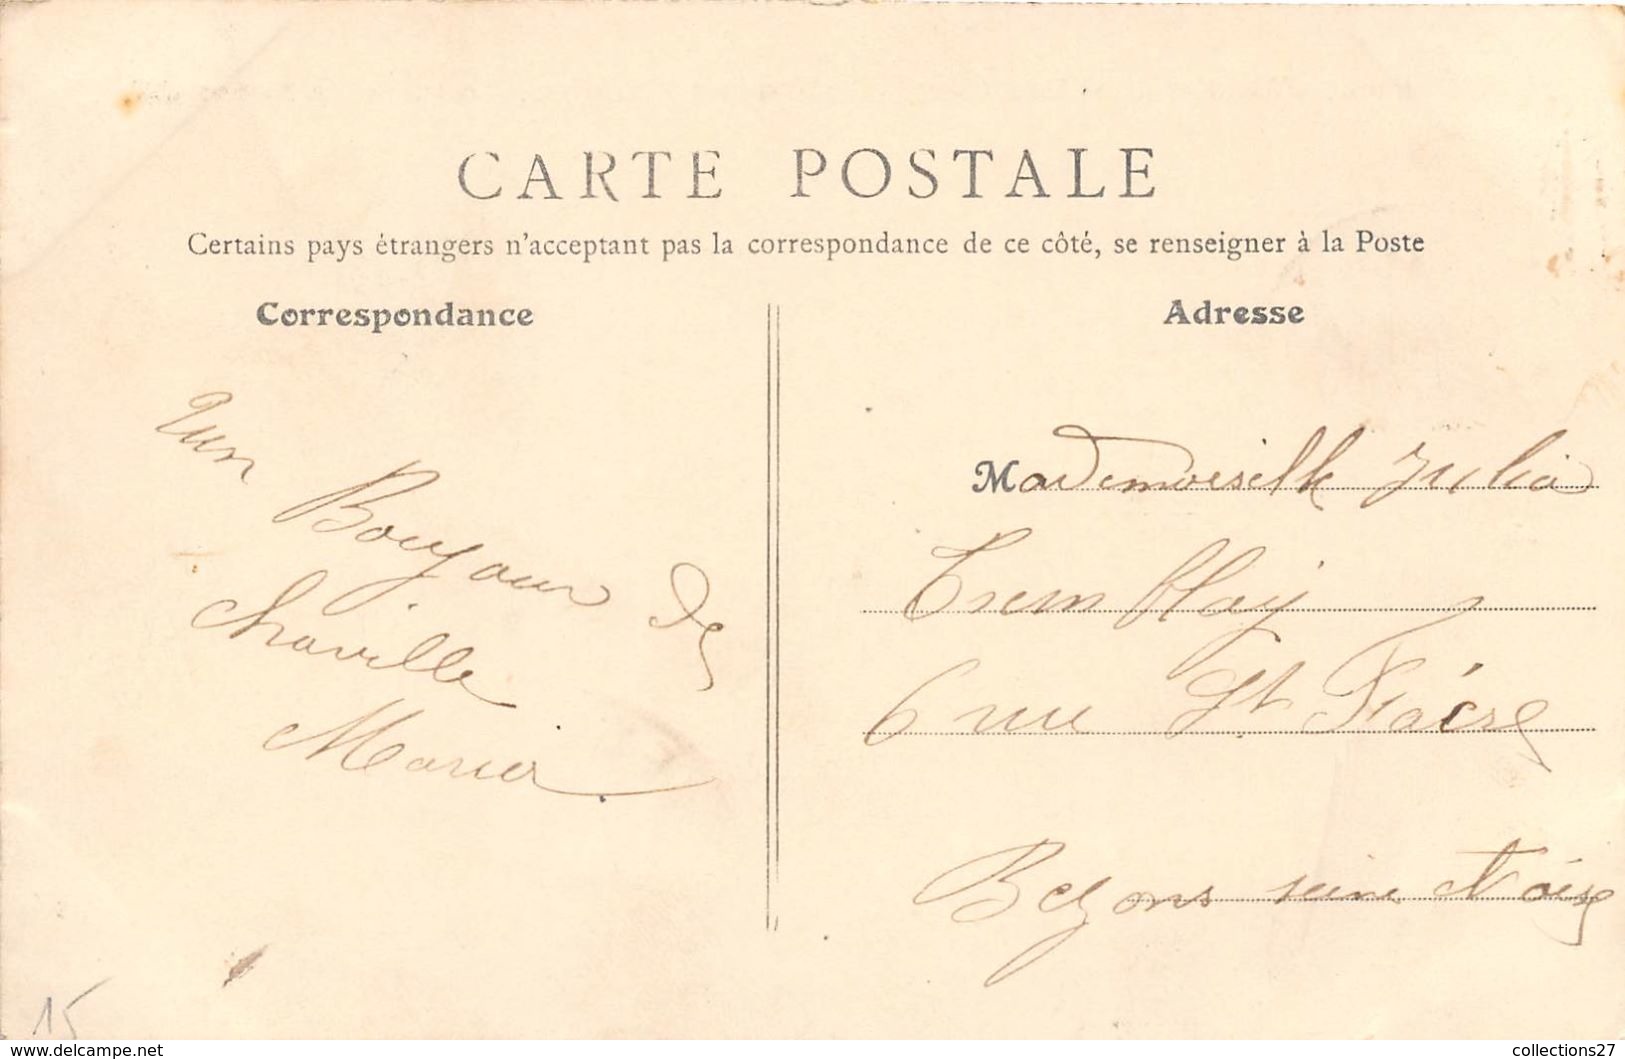 CARTE POSTALE
Certains pays étrangers n'acceptant pas la correspondance de ce côté, se renseigner à la Poste
Correspondance
un
Bonjour de
chaville
Maria
Adresse
Mademoiselle Julia
Tremblay
6 rue St Fiacre
Bezons seine et oise
15
delcampe.net
collections27